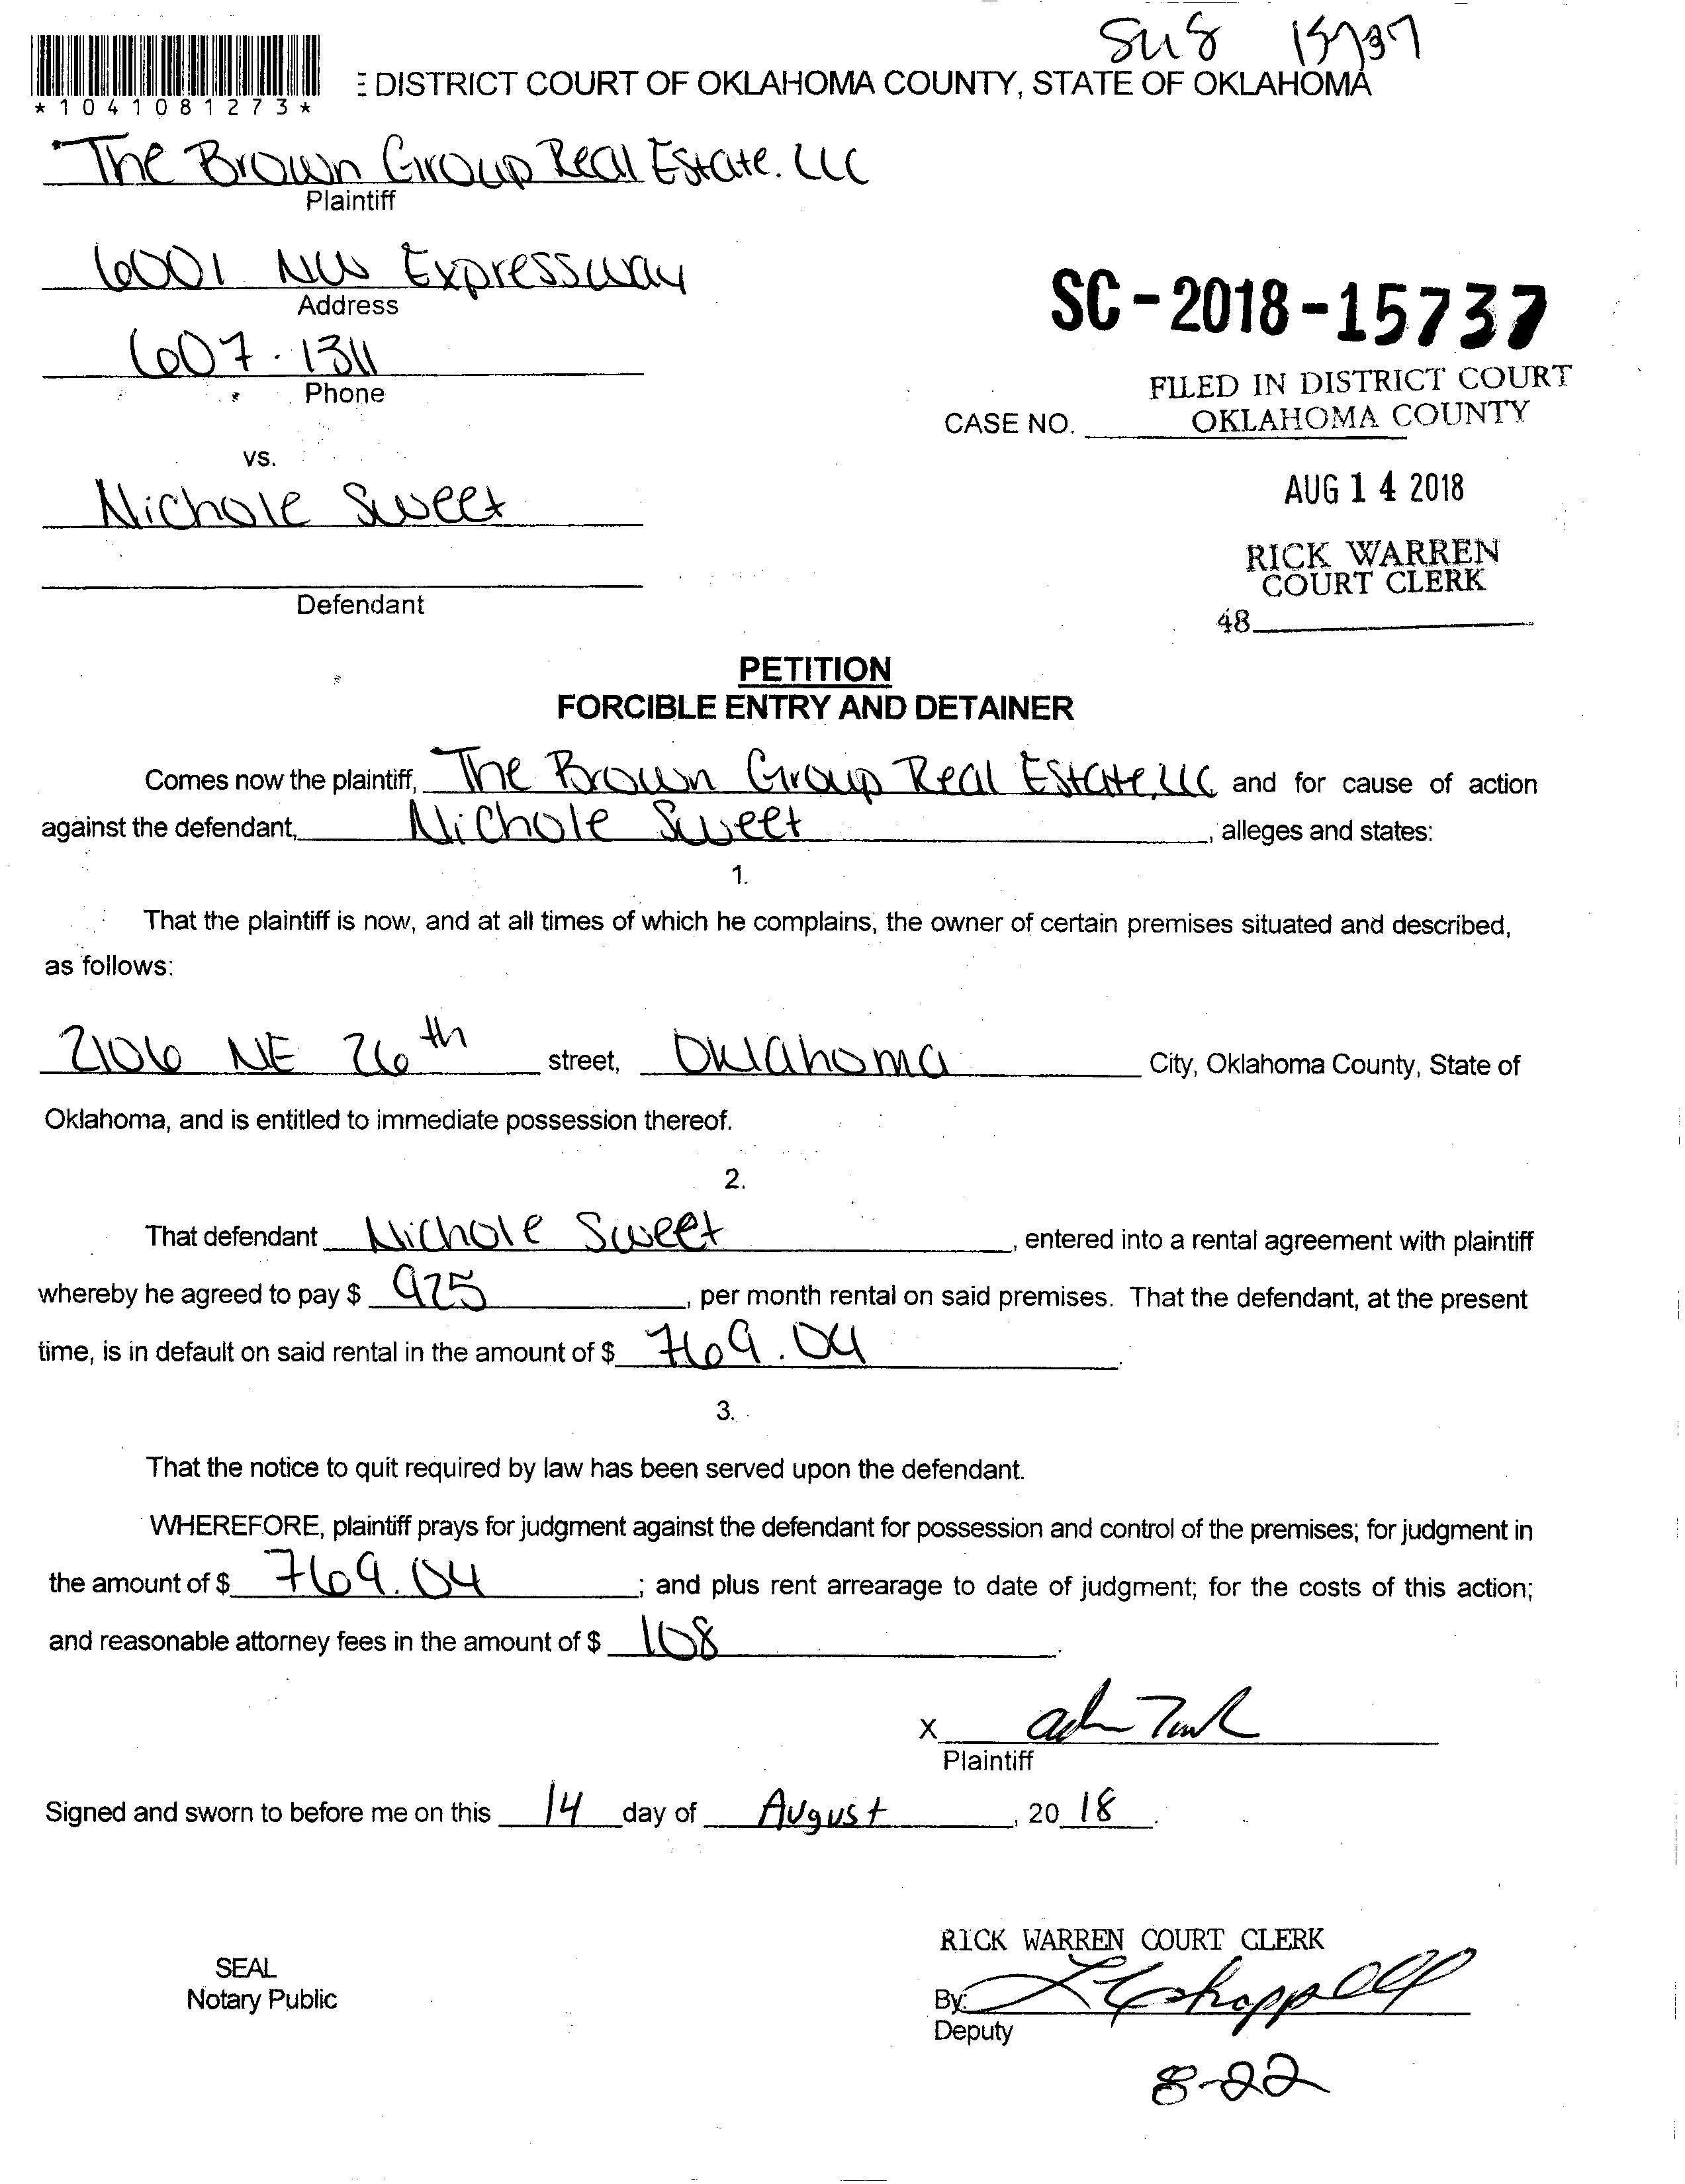 SC 8 15737
*1041081273*
E DISTRICT COURT OF OKLAHOMA COUNTY, STATE OF OKLAHOMA
The Brown Group Real Estate. LLC
Plaintiff
6001 NW Expressway
Address
SC-2018-15737
607-1311
Phone
FILED IN DISTRICT COURT
CASE NO. OKLAHOMA COUNTY
vs.
AUG 14 2018
Nichole Sweet
RICK WARREN
COURT CLERK
Defendant
48
PETITION
FORCIBLE ENTRY AND DETAINER
Comes now the plaintiff, The Brown Group Real Estate, LLC and for cause of action
against the defendant, Nichole Sweet, alleges and states:
1.
That the plaintiff is now, and at all times of which he complains, the owner of certain premises situated and described,
as follows:
2106 NE 26th street, Oklahoma City, Oklahoma County, State of
Oklahoma, and is entitled to immediate possession thereof.
2.
That defendant Nichole Sweet, entered into a rental agreement with plaintiff
whereby he agreed to pay $ 925, per month rental on said premises. That the defendant, at the present
time, is in default on said rental in the amount of $ 769.04.
3.
That the notice to quit required by law has been served upon the defendant.
WHEREFORE, plaintiff prays for judgment against the defendant for possession and control of the premises; for judgment in
the amount of $ 769.04; and plus rent arrearage to date of judgment; for the costs of this action;
and reasonable attorney fees in the amount of $ 108.
X
Plaintiff
Signed and sworn to before me on this 14 day of August, 20 18.
RICK WARREN COURT CLERK
SEAL
Notary Public
By: Chappell
Deputy
8-22